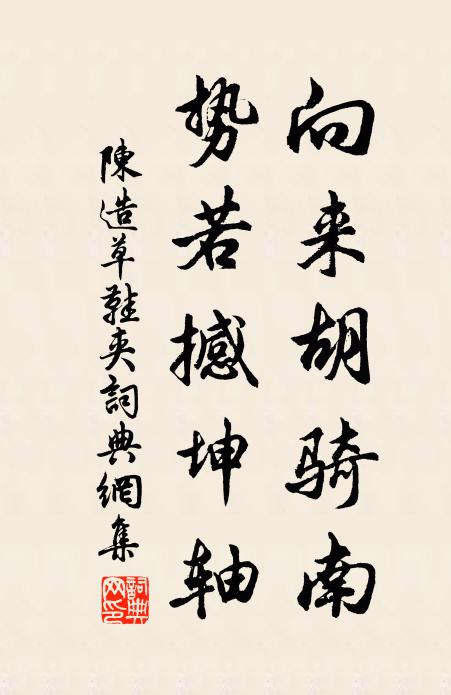 向来胡骑南
势若撼坤轴
陳造草鞋夹詞典網集
詞典网印